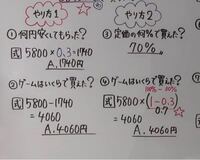 やり方1
①何円安くしてもらった?
式 5800×0.3=1740
A.1740円
②ゲームはいくらで買えた?
式 5800-1740
=4060
A.4060円
やり方2
③定価の何%で買えた?
70%
④ゲームはいくらで買えた?
100%-30%
式 5800×(1-0.3)
0.7
=4060
A.4060円